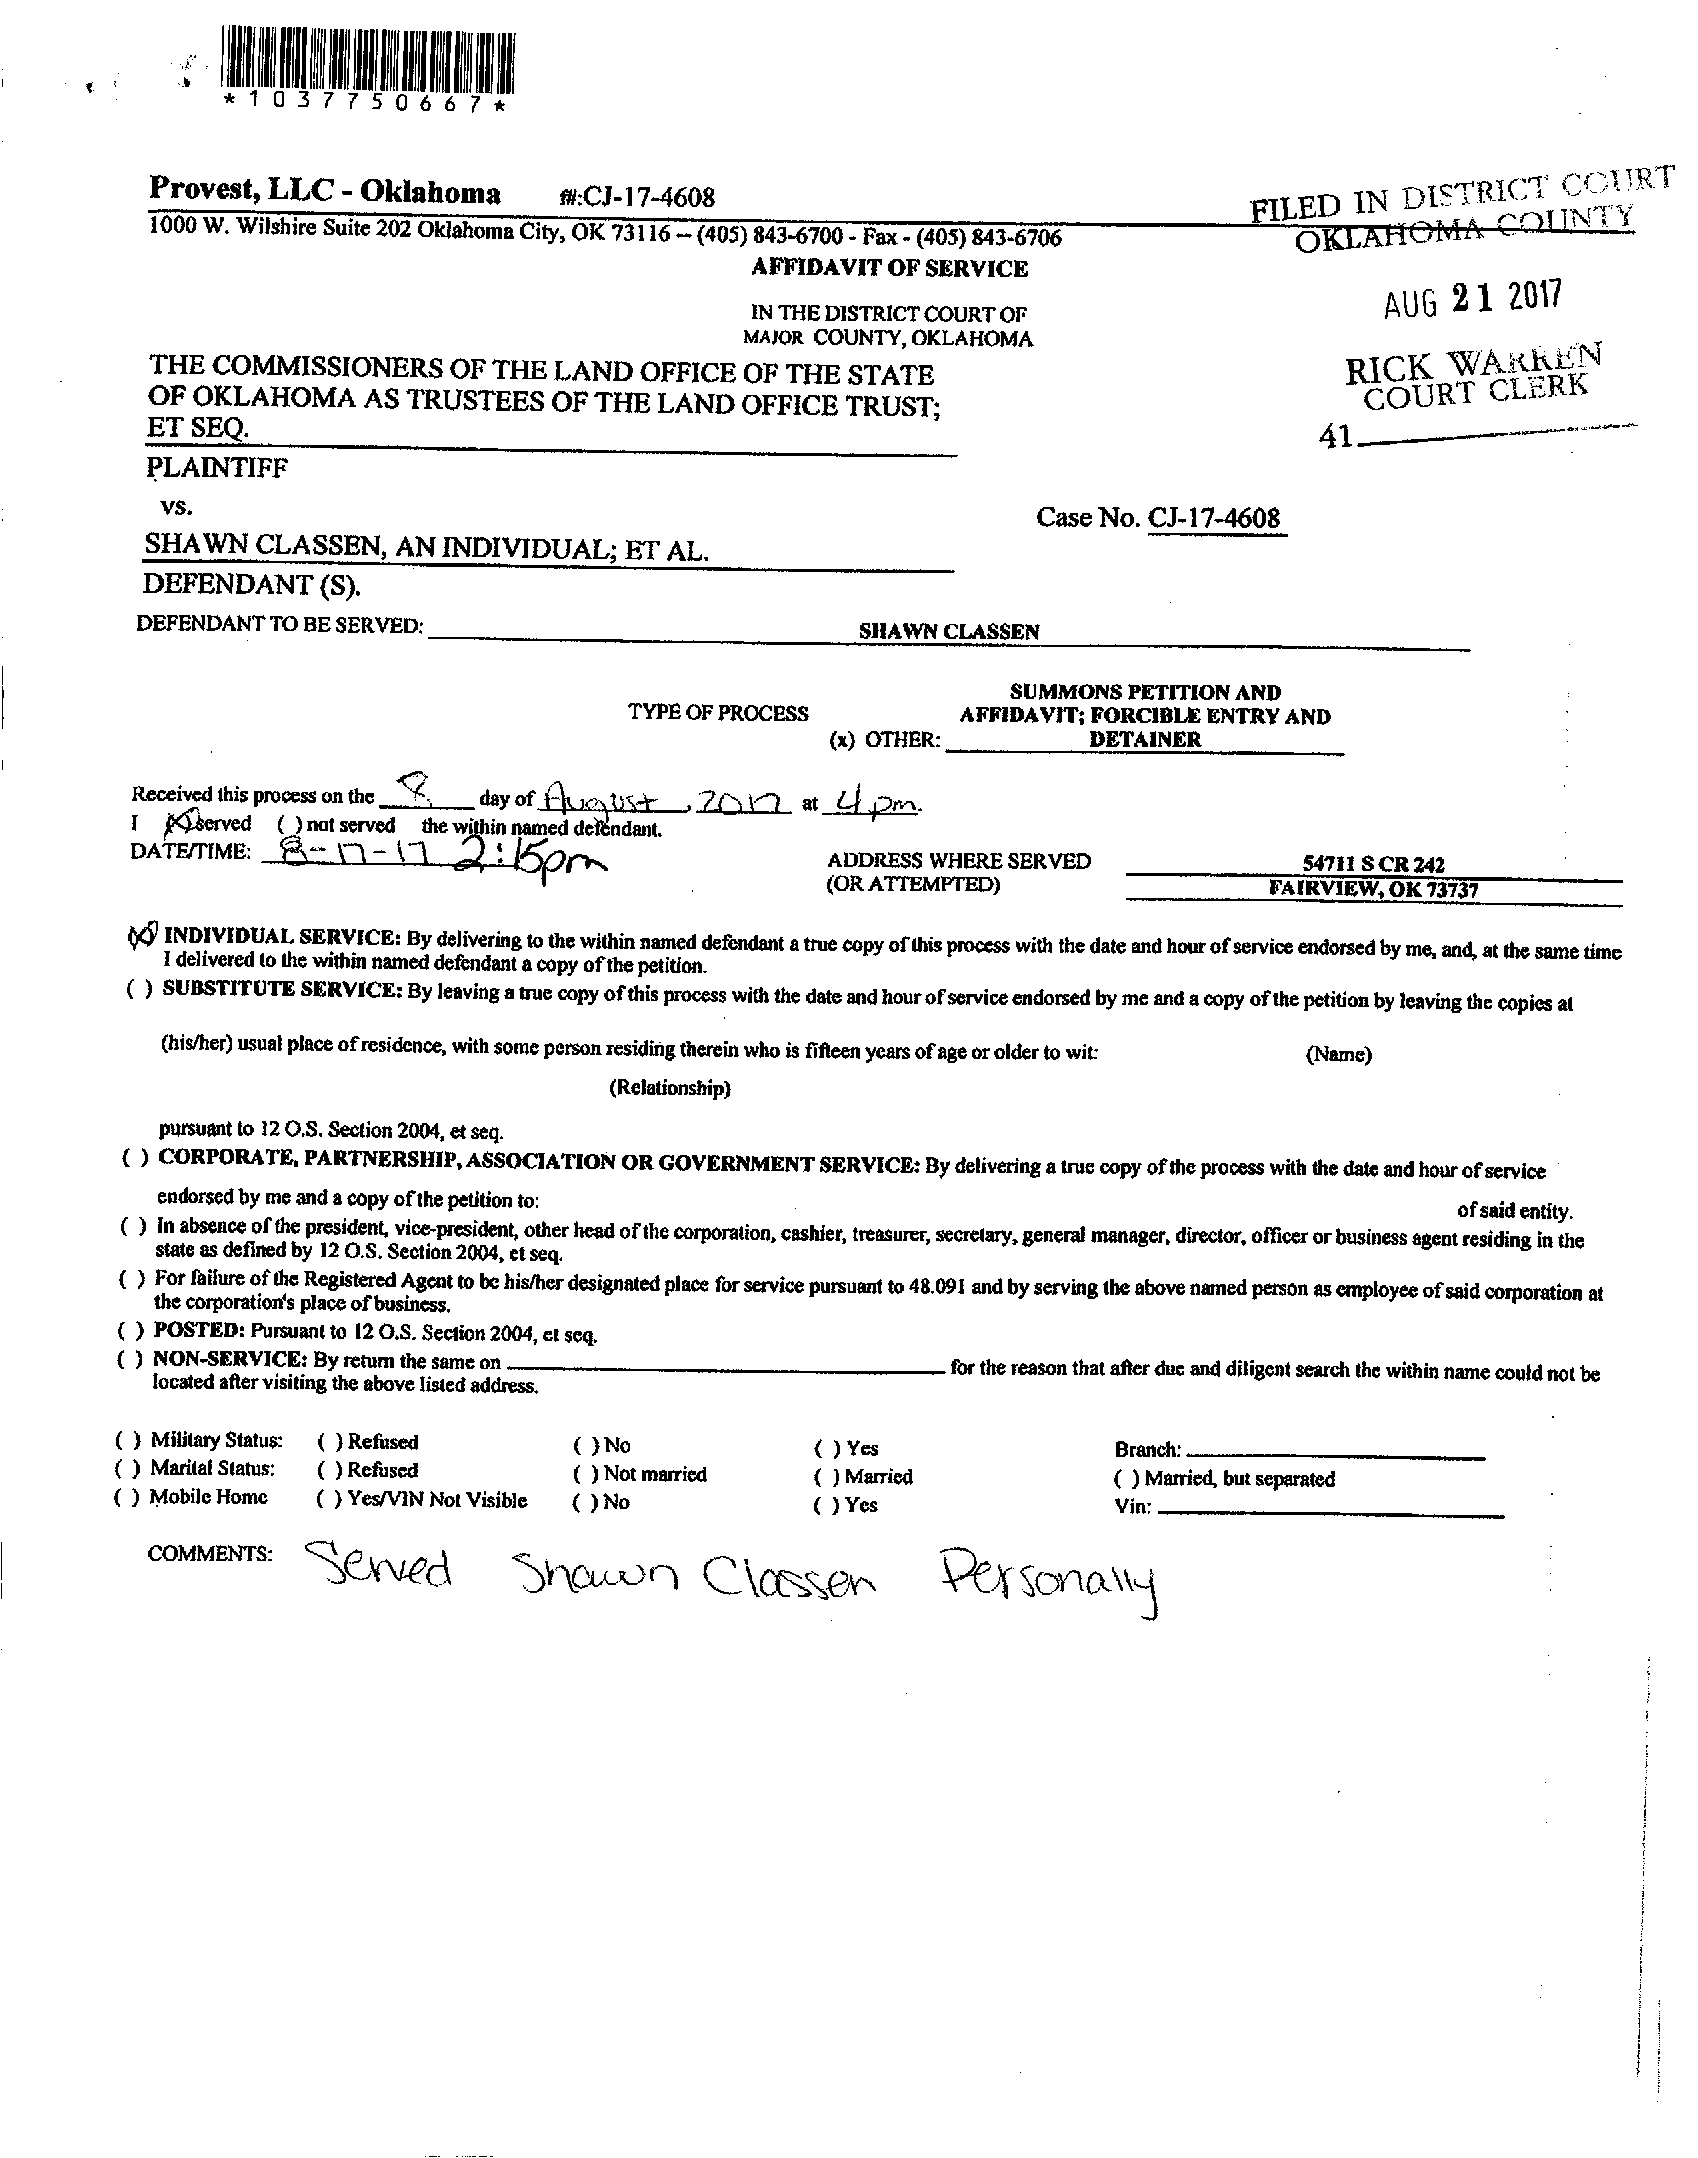 *1037750667*
Provest, LLC - Oklahoma #:CJ-17-4608
1000 W. Wilshire Suite 202 Oklahoma City, OK 73116 – (405) 843-6700 - Fax - (405) 843-6706
FILED IN DISTRICT COURT
OKLAHOMA COUNTY
AUG 21 2017
RICK WARREN
COURT CLERK
41
AFFIDAVIT OF SERVICE
IN THE DISTRICT COURT OF
MAJOR COUNTY, OKLAHOMA
THE COMMISSIONERS OF THE LAND OFFICE OF THE STATE
OF OKLAHOMA AS TRUSTEES OF THE LAND OFFICE TRUST;
ET SEQ.
PLAINTIFF
vs.
Case No. CJ-17-4608
SHAWN CLASSEN, AN INDIVIDUAL; ET AL.
DEFENDANT (S).
DEFENDANT TO BE SERVED: SHAWN CLASSEN
TYPE OF PROCESS
(x) OTHER:
SUMMONS PETITION AND
AFFIDAVIT; FORCIBLE ENTRY AND
DETAINER
Received this process on the 8 day of August, 2017 at 4pm.
I (X) served ( ) not served the within named defendant.
DATE/TIME: 8-17-17 2:15pm
ADDRESS WHERE SERVED
(OR ATTEMPTED)
54711 S CR 242
FAIRVIEW, OK 73737
(X) INDIVIDUAL SERVICE: By delivering to the within named defendant a true copy of this process with the date and hour of service endorsed by me, and, at the same time
I delivered to the within named defendant a copy of the petition.
( ) SUBSTITUTE SERVICE: By leaving a true copy of this process with the date and hour of service endorsed by me and a copy of the petition by leaving the copies at
(his/her) usual place of residence, with some person residing therein who is fifteen years of age or older to wit: (Name)
(Relationship)
pursuant to 12 O.S. Section 2004, et seq.
( ) CORPORATE, PARTNERSHIP, ASSOCIATION OR GOVERNMENT SERVICE: By delivering a true copy of the process with the date and hour of service
endorsed by me and a copy of the petition to: of said entity.
( ) In absence of the president, vice-president, other head of the corporation, cashier, treasurer, secretary, general manager, director, officer or business agent residing in the
state as defined by 12 O.S. Section 2004, et seq.
( ) For failure of the Registered Agent to be his/her designated place for service pursuant to 48.091 and by serving the above named person as employee of said corporation at
the corporation's place of business.
( ) POSTED: Pursuant to 12 O.S. Section 2004, et seq.
( ) NON-SERVICE: By return the same on for the reason that after due and diligent search the within name could not be
located after visiting the above listed address.
( ) Military Status: ( ) Refused ( ) No ( ) Yes Branch:
( ) Marital Status: ( ) Refused ( ) Not married ( ) Married ( ) Married, but separated
( ) Mobile Home ( ) Yes/VIN Not Visible ( ) No ( ) Yes Vin:
COMMENTS: Served Shawn Classen Personally